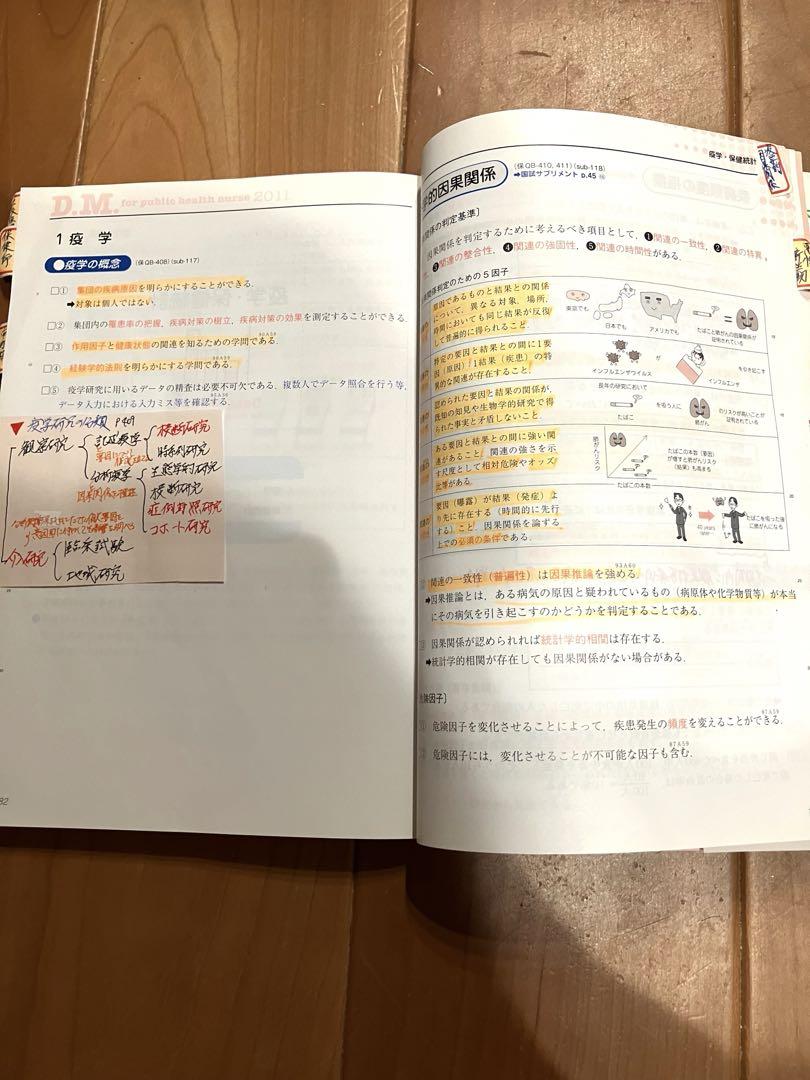 D.M. for public health nurse 2011
1 疫 学
●疫学の概念 (保QB-408) (sub-117)
□① 集団の疾病原因を明らかにすることができる.
➡対象は個人ではない.
□② 集団内の罹患率の把握, 疾病対策の樹立, 疾病対策の効果を測定することができる.
□③ 作用因子と健康状態の関連を知るための学問である.
□④ 経験学的法則を明らかにする学問である.
□⑤ 疫学研究に用いるデータの精査は必要不可欠である. 複数人でデータ照合を行う等,
データ入力における入力ミス等を確認する.
▼疫学研究の分類 P409
観察研究
記述疫学
横断研究
時系列研究
分析疫学
生態学的研究
横断研究
症例対照研究
コホート研究
介入研究
臨床試験
地域研究
82
疫学・保健統計
学的因果関係 (保QB-410, 411) (sub-118)
➡国試サプリメント p.45
関係の判定基準〕
因果関係を判定するために考えるべき項目として, ❶関連の一致性, ❷関連の特異
❸関連の整合性, ❹関連の強固性, ❺関連の時間性がある.
関係判定のための5因子
要因であるものと結果との関係
について, 異なる対象, 場所,
時間においても同じ結果が反復
して普遍的に得られること.
東京でも
日本でも
アメリカでも
たばこと肺がんの因果関係が
証明されている
特定の要因と結果との間に1要
因(原因), 1結果(疾患)の特
異的な関連が存在すること.
インフルエンザウイルス
が
インフルエンザ
を引き起こす
認められた要因と結果の関係が,
既知の知見や生物学的研究で得
られた事実と矛盾しないこと.
長年の研究において
たばこ
を吸う人に
肺がん
のリスクが高いことが
証明されている
ある要因と結果との間に強い関
連があること. 関連の強さを示
す尺度として相対危険やオッズ
比等がある.
肺がんリスク
たばこの本数
たばこの本数(要因)
が増すと肺がんリスク
(結果)も高まる
要因(曝露)が結果(発症)よ
り先に存在する(時間的に先行
する)こと. 因果関係を論ずる
上での必須の条件である.
40 years later…
たばこを吸った後
に肺がんになる
関連の一致性(普遍性)は因果推論を強める.
➡因果推論とは, ある病気の原因と疑われているもの(病原体や化学物質等)が本当
にその病気を引き起こすのかどうかを判定することである.
因果関係が認められれば統計学的相関は存在する.
➡統計学的相関が存在しても因果関係がない場合がある.
危険因子〕
危険因子を変化させることによって, 疾患発生の頻度を変えることができる.
危険因子には, 変化させることが不可能な因子も含む.